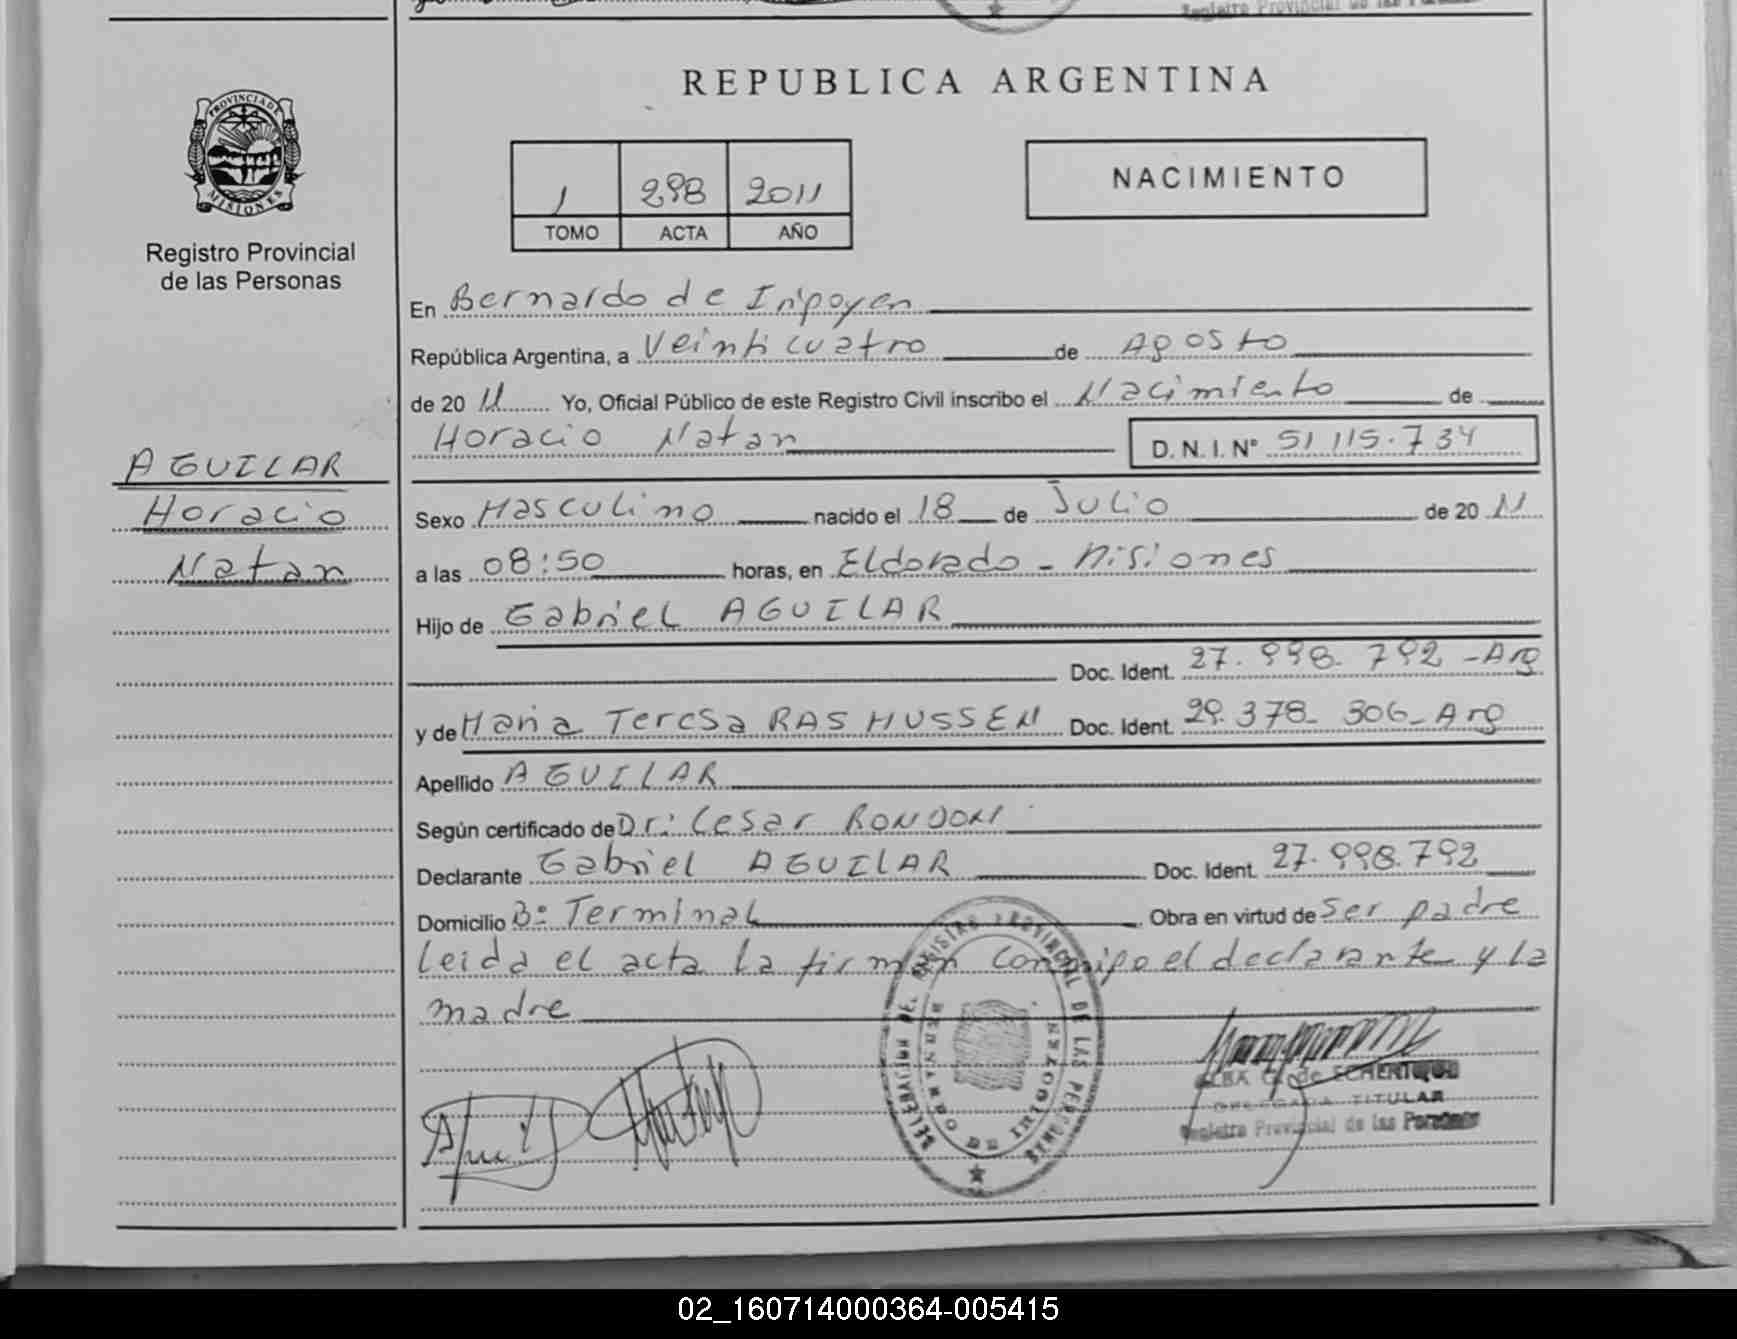 Registro Provincial de las Personas
REPUBLICA ARGENTINA
PROVINCIA DE
MISIONES
Registro Provincial
de las Personas
1 298 2011
TOMO ACTA AÑO
NACIMIENTO
En Bernardo de Irigoyen
República Argentina, a Veinticuatro de Agosto
de 20 11 Yo, Oficial Público de este Registro Civil inscribo el Nacimiento de
Horacio Natan D. N. I. Nº 51 115.734
AGUILAR
Horacio
Natan
Sexo Masculino nacido el 18 de Julio de 20 11
a las 08:50 horas, en Eldorado - Misiones
Hijo de Gabriel AGUILAR
Doc. Ident. 27.998.792 - Arg
y de Maria Teresa RASMUSSEN Doc. Ident. 29.378.306 - Arg
Apellido AGUILAR
Según certificado de Dr: Cesar RONDONI
Declarante Gabriel AGUILAR Doc. Ident. 27.998.792
Domicilio Bº Terminal Obra en virtud de ser padre
leida el acta la firman conmigo el declarante y la
madre
DELEGACION DEL REGISTRO PROVINCIAL DE LAS PERSONAS
BERNARDO DE IRIGOYEN
ELBA G. de ECHENIQUE
DELEGADA TITULAR
Registro Provincial de las Personas
02_160714000364-005415